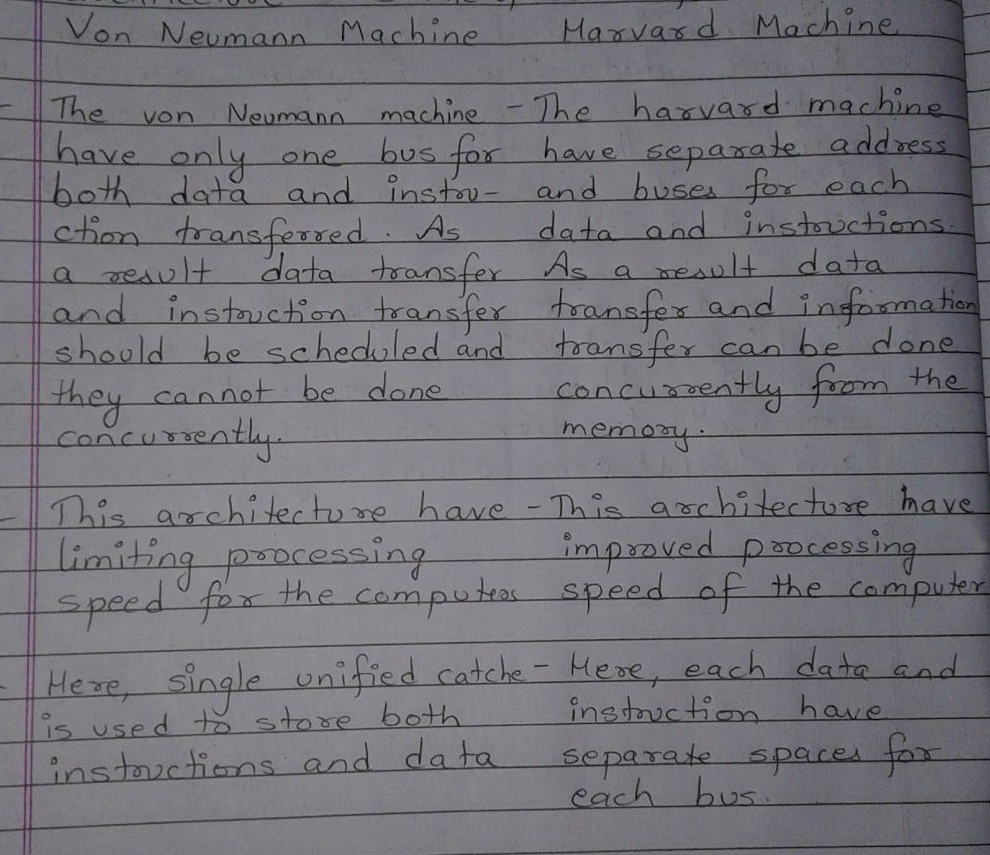 Von Neumann Machine Harvard Machine
- The von Neumann machine - The harvard machine
have only one bus for have separate address
both data and instru- and buses for each
ction transferred. As data and instructions.
a result data transfer As a result data
and instruction transfer transfer and information
should be scheduled and transfer can be done
they cannot be done concurrently from the
concurrently. memory.
- This architecture have - This architecture have
limiting processing improved processing
speed for the computers speed of the computer
- Here, single unified catche - Here, each data and
is used to store both instruction have
instructions and data separate spaces for
each bus.